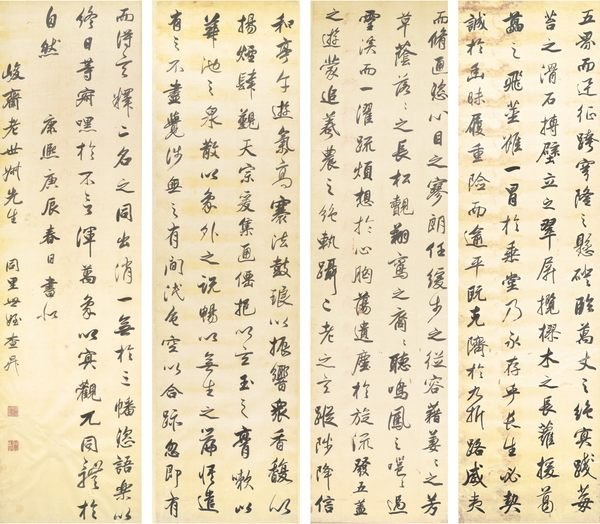 五界而迅征跨穹隆之懸磴臨萬丈之絕冥踐莓
苔之滑石搏壁立之翠屏攬樛木之長蘿援葛
藟之飛莖雖一冒於垂堂乃永存乎長生必契
誠於幽昧履重險而逾平既克隮於九折路威夷
而脩通恣心目之寥朗任緩步之從容藉萋〻之芳
草蔭落〻之長松覿翔鸞之裔〻聽鳴鳳之嗈〻過
靈溪而一濯疏煩想於心胸蕩遺塵於旋流發五蓋
之遊蒙追羲農之絕軌躡二老之玄蹤陟降信
和亭午遊氣高褰法鼓琅以振響衆香馥以
揚煙肆覲天宗爰集通僊挹以玄玉之膏嗽以
華池之泉散以象外之說暢以無生之篇悟遣
有之不盡覺涉無之有間泯色空以合跡忽即有
而得玄釋二名之同出消一無於三幡恣語樂以
終日等寂嘿於不言渾萬象以冥觀兀同體於
自然 康熙庚辰春日書似
峻齋老世叔先生 同里世姪查昇